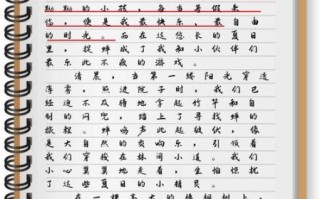 黝黝的小孩，每当暑假来
临，便是我最快乐、最自由
的时光。而在这悠长的夏日
里，捉蝉成了我和小伙伴们
最乐此不疲的游戏。
清晨，当第一缕阳光穿透
薄雾，照进院子时，我们已
经迫不及待地拿起竹竿和自
制的网兜，踏上了寻找蝉的
旅程。蝉鸣声此起彼伏，像
是大自然的交响乐，引领着
我们穿梭在林间小道。我们
小心翼翼地走着，生怕惊扰
了这些夏日的小精灵。
在一棵高大的梧桐树上，